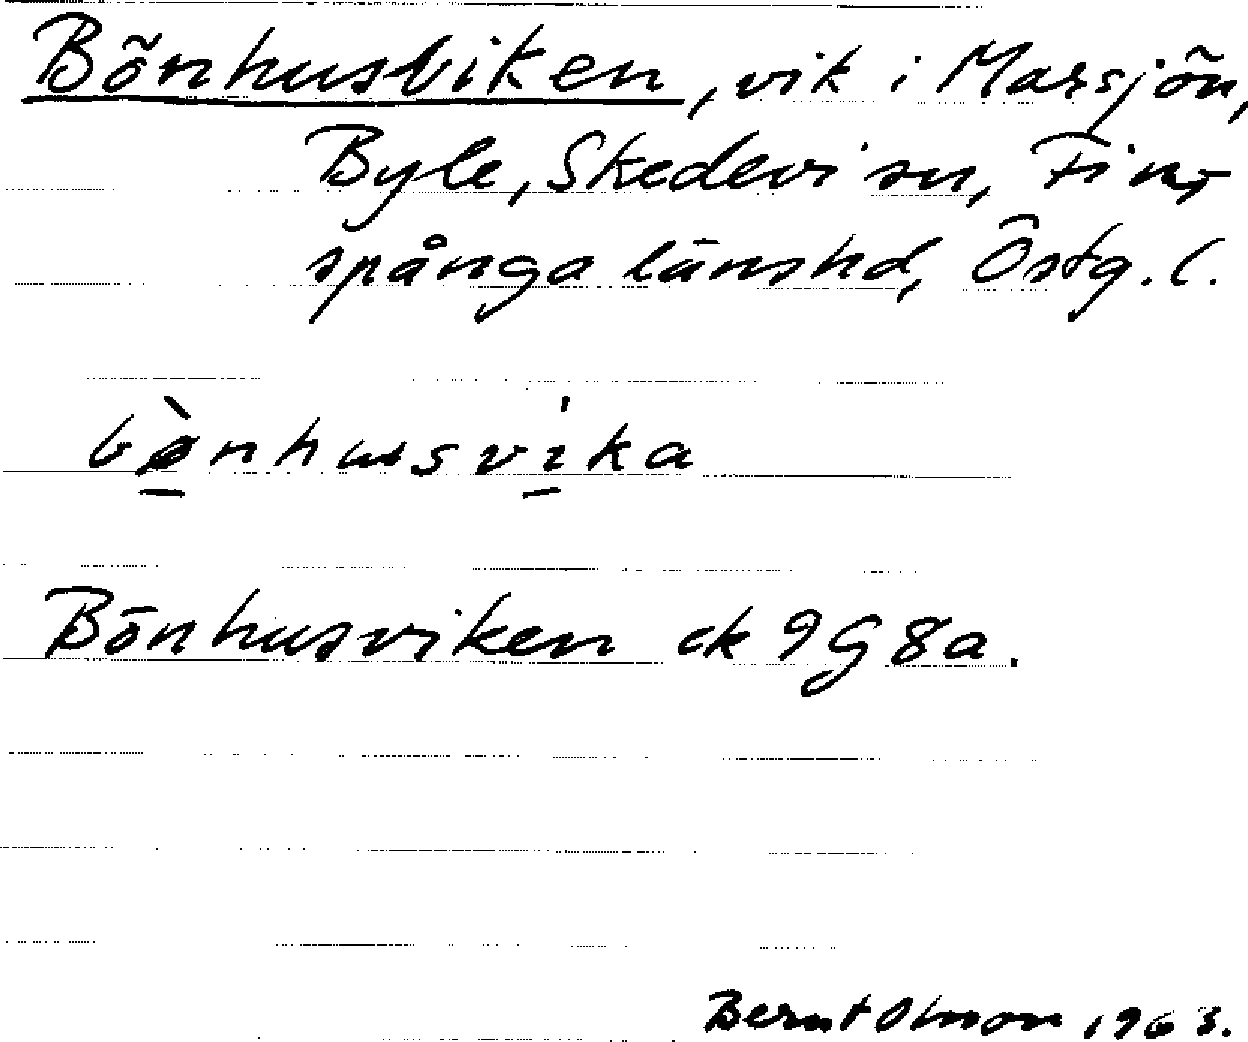 Bönhusviken, vik i Marsjön,
Byle, Skedevi sn, Fin-
spånga länshd, Östg. l.
bø̀nhusvika
Bönhusviken ek 9G 8a.
Bernt Olsson 1963.